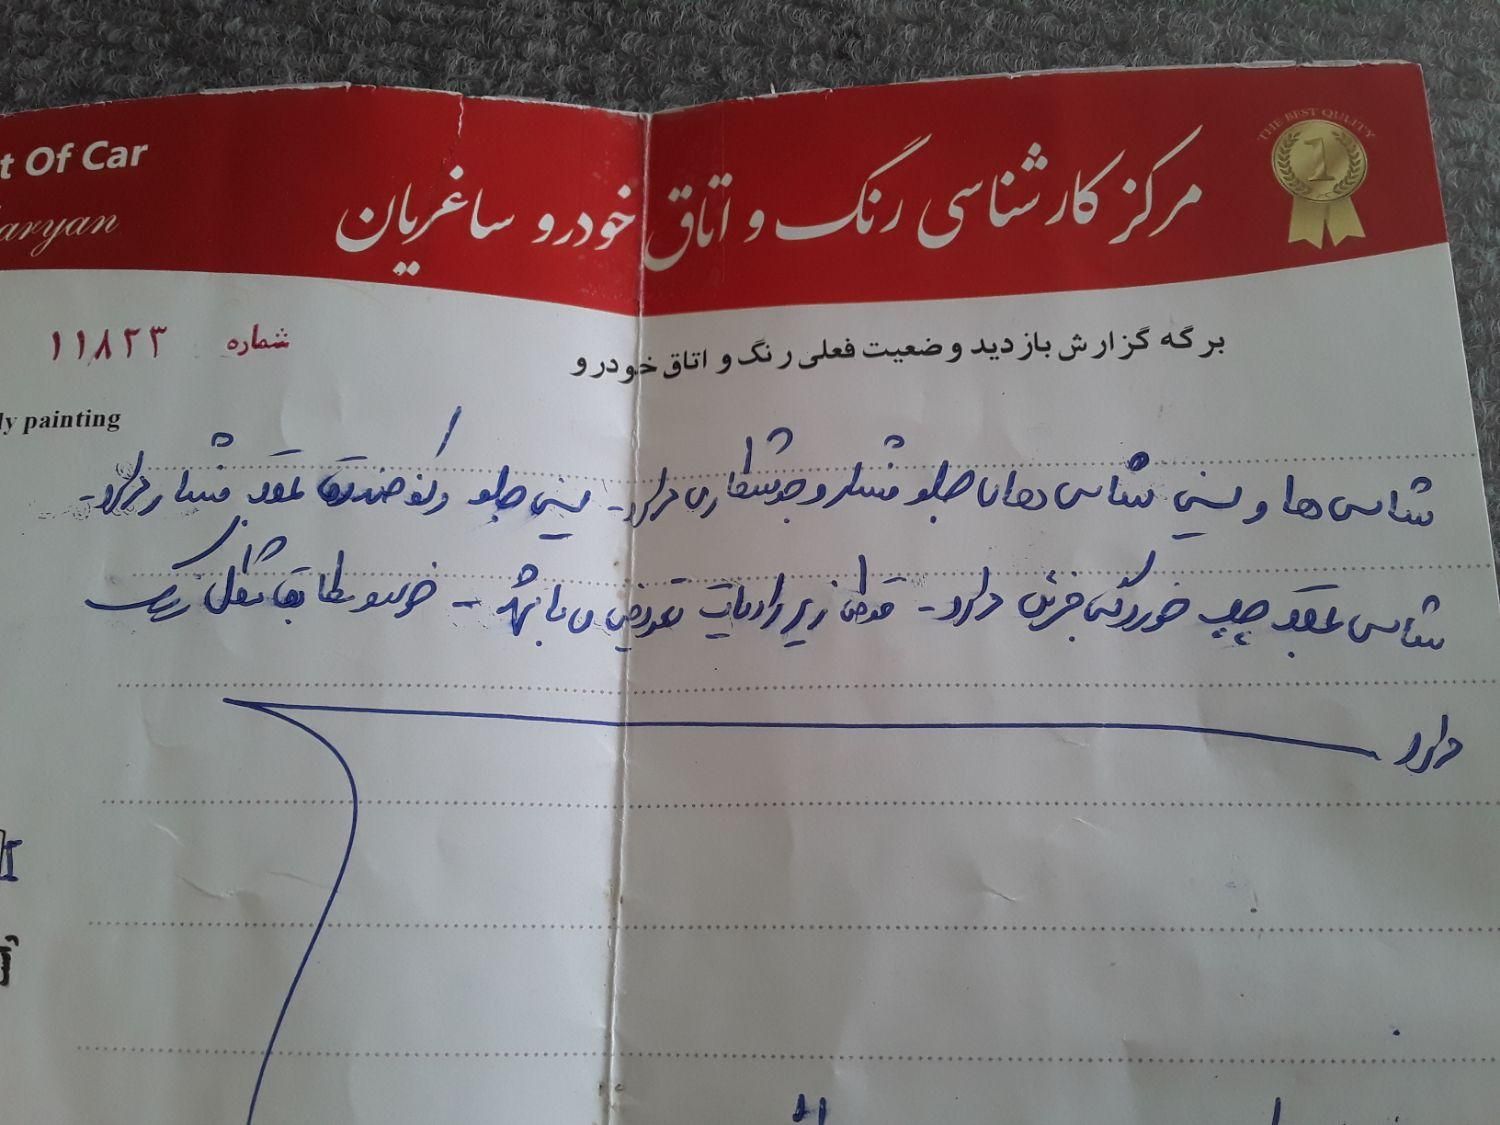 THE BEST QULITY
1
مرکز کارشناسی رنگ و اتاق خودرو ساغریان
t Of Car
aryan
برگه گزارش بازدید وضعیت فعلی رنگ و اتاق خودرو
شماره ۱۱۸۲۳
ly painting
شاسی ها و سینی شاسی دهانه جلو فشار و جوشکاری دارد - سینی جلو و کف صندوق عقب فشار دارد -
شاسی عقب چپ خوردگی جزئی دارد - قوطی زیر رادیات تعویض می باشد - خودرو مطابق شکل رنگ
دارد
راست